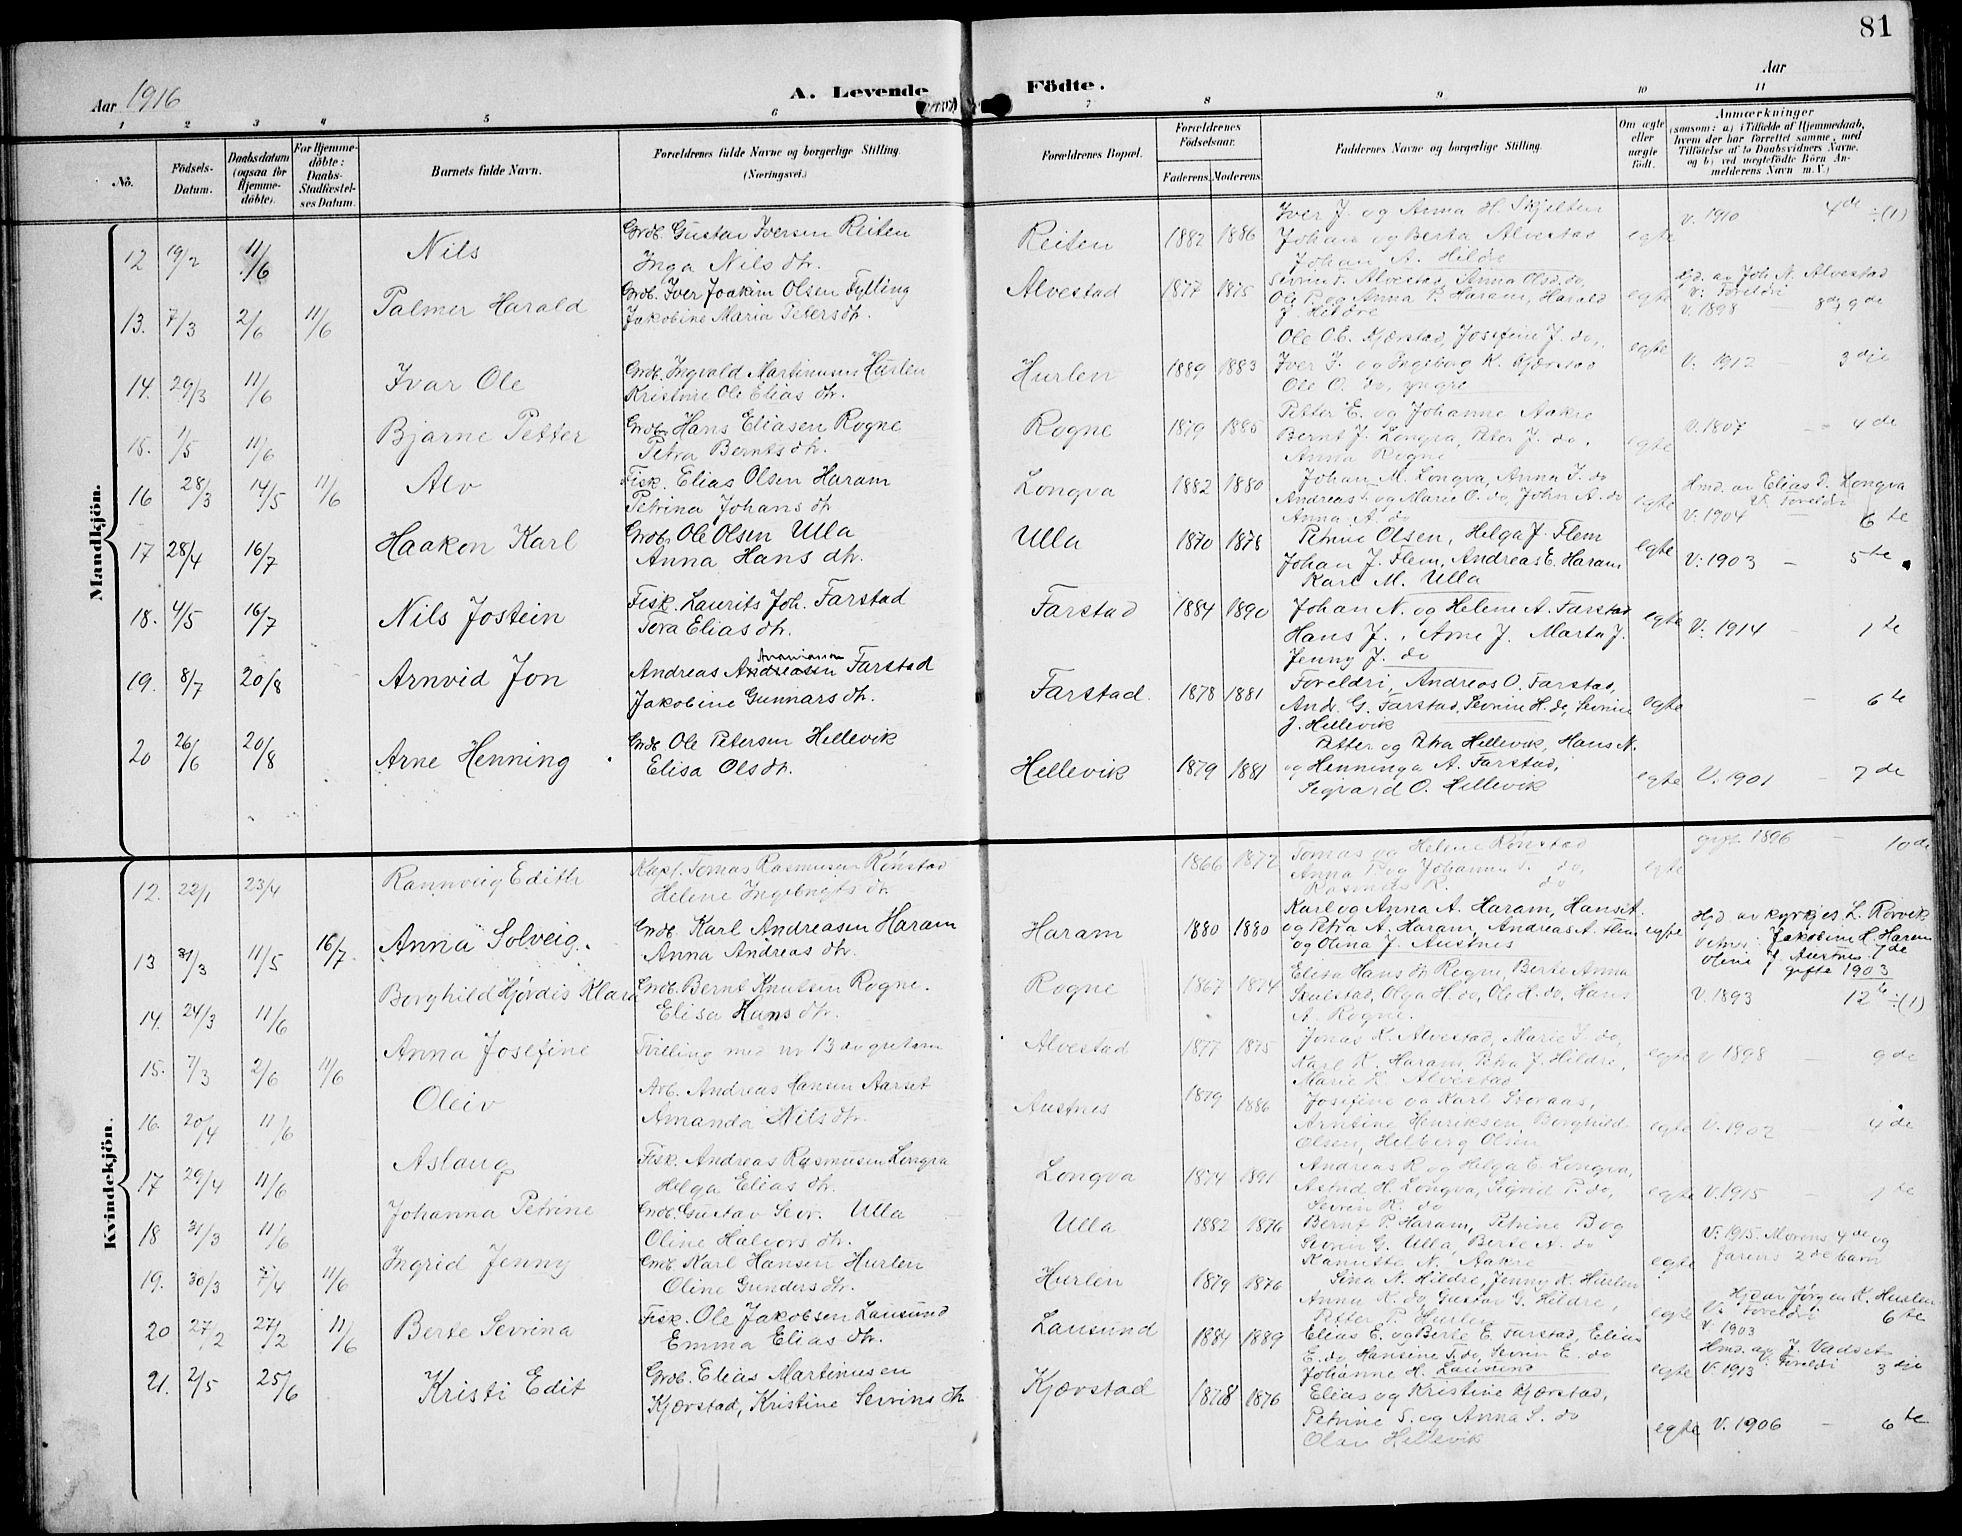 81
Aar 1916
A. Levende Födte.
Aar
1 2 3 4 5 6 7 8 9 10 11
No.
Födsels-Datum.
Daabsdatum (ogsaa for Hjemme-döbte).
For Hjemme-döbte: Daabs-Stadfæstel-ses Datum.
Barnets fulde Navn.
Forældrenes fulde Navne og borgerlige Stilling. (Næringsvei.)
Forældrenes Bopæl.
Forældrenes Födselsaar.
Faderens. Moderens.
Faddernes Navne og borgerlige Stilling.
Om ægte eller uægte födt.
Anmærkninger
(saasom: a) i Tilfælde af Hjemmedaab, hvem der har forrettet samme, med Tilföielse af to Daabsvidners Navne, og b) ved uægtefödte Börn An-melderens Navn m.V.)
Mandkjön.
12 19/2 11/6 Nils
Grdb. Gustav Iversen Reiten
Inga Nilsdtr.
Reiten 1882 1886
Iver J. og Anna H. Skjelten
Johan og Berta Alvestad
Johan A. Hildre
egte V. 1910 4de ÷(1)
13. 7/3 2/6 11/6 Palmer Harald
Grdb. Iver Joakim Olsen Fylling
Jakobine Maria Petersdtr.
Alvestad 1877 1875
Ole P. og Anna P. Haram, Harald
J. Hildre
egte
Hjd. av Joh. N. Alvestad
V: Foreldri
V. 1898 8de, 9de
14. 29/3 11/6 Ivar Ole
Grdb. Ingvald Martinusen Hurlen
Kristine Ole Eliasdtr.
Hurlen 1889 1883
Ole O.E. Kjærstad, Josefine J. do,
Iver J. og Ingeborg K. Kjærstad
Ole O. do, yngre
egte V. 1912 3dje
15. 1/5 11/6 Bjarne Petter
Grdb. Hans Eliasen Rogne
Petra Berntsdtr.
Rogne 1879 1885
Petter E. og Johanne Aakre
Bernt J. Longva, Peter J. do,
Anna Rogne
egte V. 1807 4de
16 28/3 14/5 11/6 Alv
Fisk. Elias Olsen Haram
Petrina Johansdtr
Longva 1882 1880
Johan M. Longva, Anna J. do
Andreas og Marie O. do, John A. do
Anna A. do
egte
Hmd. av Elias D. Longva
V. Foreldri
V. 1904 6te
17 28/4 16/7 Haakon Karl
Grdb. Ole Olsen Ulla
Anna Hansdtr.
Ulla 1870 1878
Petrine Olsen, Helga J. Flem
Johan J. Flem, Andreas E. Haram
Karl M. Ulla
egte V: 1903 – 5te
18. 4/5 16/7 Nils Jostein
Fisk. Laurits Joh. Farstad
Tora Eliasdtr.
Farstad 1884 1890
Johan N. og Helene A. Farstad
Hans J., Arne J. Marta J.
Jenny J. do
egte V: 1914 – 1te
19. 8/7 20/8 Arnvid Jon
Ananiassen
Andreas Andreasen Farstad
Jakobine Gunnarsdtr.
Farstad. 1878 1881
Foreldri, Andreas O. Farstad,
And. G. Farstad, Sevrine H. do, Sevrine
J. Hellevik
egte – 6te
20 26/6 20/8 Arne Henning
Grdb Ole Petersen Hellevik
Elisa Olsdtr.
Hellevik 1879 1881
Petter og Petra Hellevik, Hans N.
og Henninga A. Farstad,
Segvard O. Hellevik
egte V. 1901 – 7de
Kvindekjön.
12. 22/1 23/4 Rannveig Edith
Kapt. Tomas Rasmusen Rönstad
Helene Ingebrigtsdtr
1866 1872
Tomas og Helene Rönstad
Anna P. og Johanna T. do,
Rasmus R. do
egte gift 1896 – 10de
13 31/3 11/5 16/7 Anna Solveig.
Grdb. Karl Andreasen Haram
Anna Andreasdtr.
Haram 1880 1880
Karl og Anna A. Haram, Hans A.
og Petra A. Haram, Andreas A. Flem
og Olina J. Austnes
egte
Hjd av kyrkjes. L. Rørvik
vitner: Jakobine H. Haram
Oline J. Austnes. 7de
gifte 1903
14. 24/3 11/6 Borghild Hjördis Klara
Grdb. Bernt Knutsen Rogne.
Elisa Hansdtr.
Rogne 1867 1874
Elisa Hansdtr Rogne, Berte Anna
Skulstad, Olga H. do, Ole H. do, Hans
A. Rogne.
V. 1893 12te ÷(1)
15. 7/3 2/6 11/6 Anna Josefine
Tvilling med nr 13 av gutarn
Alvestad 1877 1875
Jonas K. Alvestad, Marie J. do,
Karl K. Haram, Petra J. Hildre,
Marie K. Alvestad
egte V 1898 – 9de
16. 20/4 11/6 Oleiv
Arb. Andreas Hansen Aarset
Amanda Nilsdtr.
Austnes 1879 1886
Josefine og Karl Sveraas,
Arntine Henriksen, Borghild
Olsen, Helberg Olsen
egte V. 1902 – 4de
17 29/4 11/6 Aslaug
Fisk. Andreas Rasmusen Longva
Helga Eliasdtr.
Longva 1874 1891
Andreas R. og Helga E. Longva,
Astrid H. Longva, Sigrid P. do,
Sevrin R. do
egte V. 1915 – 1te
18 31/3 11/6 Johanna Petrine
Grdb. Gustav Sevr. Ulla
Oline Halvorsdtr.
Ulla 1882 1876
Bernt P. Haram, Petrine B og
Sevrin G. Ulla, Berte A. do
N. Aakre
egte
V: 1915. Morens 4de og
farens 2de barn
19. 30/3 7/4 11/6 Ingrid Jenny
Grdb Karl Hansen Hurlen
Oline Gundersdtr.
Hurlen 1879 1876
Sina N. Hildre, Jenny K. Hurlen
Anna K. do, Gustav G. Hildre,
Petter P. Hurlen
egte
Hjd av Jørgen K. Hurlen
V: Foreldri
V. 1903 6te
20 27/2 27/2 11/6 Berte Sevrina
Fisk. Ole Jakobsen Lausund
Emma Eliasdtr.
Lausund 1884 1889
Elias E. og Berte E. Farstad, Elias
E. do, Hansine T. do, Sevrin E. do
Johanne H. Lausund
egte
Hmd. av J. Vadset
V. 1913 Foreldri 3dje
21. 2/5 25/6 Kristi Edit
Grdb. Elias Martinusen
Kjærstad, Kristine Sevrinsdtr
Kjærstad 1878 1876
Elias og Kristine Kjærstad,
Petrine S. og Anna S. do
Olav Hellevik
egte V. 1906 – 6te